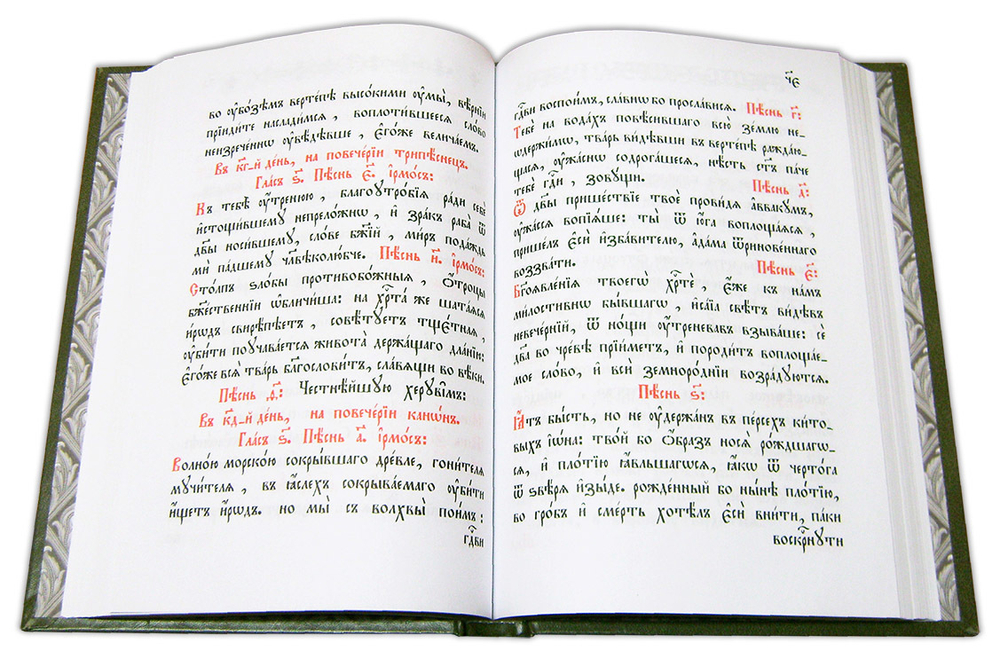 во ᲂу҆бо́зѣмъ верте́пѣ высо́кими ᲂу҆мы̀, вѣ́рнїи
прїиди́те наслади́мсѧ, воплоти́вшеесѧ сло́во
неизрече́ннѡ ᲂу҆вѣ́дѣвше, є҆го́же велича́емъ.
Въ к҃г-й де́нь, на повече́рїи трипѣ́снецъ.
Гла́съ ѕ҃. Пѣ́снь є҃. і҆рмо́съ:
Къ тебѣ̀ ᲂу҆́тренюю, благоꙋтро́бїѧ ра́ди себѐ
и҆стощи́вшемꙋ непрело́жнѡ, и҆ зра́къ раба̀ ѿ
дв҃ы носи́вшемꙋ, сло́ве бж҃їй, ми́ръ пода́ждь
ми па́дшемꙋ чл҃вѣколю́бче. Пѣ́снь и҃. і҆рмо́съ:
Сто́лпъ ѕло́бы противобо́жныѧ, ѻ҆́троцы
бж҃е́ственнїи ѡ҆бличи́ша: на хрⷭ҇та́ же шата́ѧсѧ
и҆́рѡдъ свирѣ́пѣетъ, совѣ́тꙋетъ тщє́тнаѧ,
ᲂу҆би́ти поꙋча́етсѧ живота̀ держа́щаго дла́нїю:
є҆го́же всѧ̀ тва́рь блгⷭ҇ови́тъ, сла́вѧщи во вѣ́ки.
Пѣ́снь ѳ҃: Честнѣ́йшꙋю херꙋві̑мъ:
Въ к҃д-й де́нь, на повече́рїи канѡ́нъ.
Гла́съ ѕ҃. Пѣ́снь а҃. і҆рмо́съ:
Волно́ю морско́ю сокры́вшаго дре́вле, гони́телѧ
мꙋчи́телѧ, въ ꙗ҆́слехъ сокрыва́емаго ᲂу҆би́ти
и҆́щетъ и҆́рѡдъ. но мы̀ съ волхвы̀ пои́мъ:
гдⷭ҇ви
ч҃є
гдⷭ҇ви воспои́мъ, сла́внѡ бо просла́висѧ. Пѣ́снь г҃:
Тебѐ на вода́хъ повѣ́сившаго всю̀ зе́млю не-
ѡдержи́мѡ, тва́рь ви́дѣвши въ верте́пѣ ражда́ю-
щасѧ, ᲂу҆жа́снѡ содрога́шесѧ, нѣ́сть ст҃ъ па́че
тебѐ гдⷭ҇и, зовꙋ́щи. Пѣ́снь д҃:
Ѿ дв҃ы прише́ствїе твоѐ прови́дѧ а҆ввакꙋ́мъ,
ᲂу҆жа́ссѧ вопїѧ́ше: ты̀ ѿ ю҆́га воплоща́ѧсѧ,
прише́лъ є҆сѝ и҆зба́вителю, а҆да́ма ѿринове́ннаго
воззва́ти. Пѣ́снь є҃:
Бг҃оѧвле́нїѧ твоегѡ̀ хрⷭ҇тѐ, є҆́же къ на́мъ
ми́лостивнѡ бы́вшагѡ, и҆са́їа свѣ́тъ ви́дѣвъ
невече́рнїй, ѿ но́щи ᲂу҆́треневавъ взыва́ше: сѐ
дв҃а во чре́вѣ прїи́метъ, и҆ породи́тъ воплоща́е-
мое сло́во, и҆ всѝ земноро́днїи возра́дꙋютсѧ.
Пѣ́снь ѕ҃:
Ꙗ҆́тъ бы́сть, но не ᲂу҆держа́нъ въ пе́рсехъ ки́то-
выхъ і҆ѡ́на: тво́й бо ѻ҆́бразъ носѧ̀ ро́ждшагѡ-
сѧ, и҆ пло́тїю ꙗ҆́вльшагѡсѧ, ꙗ҆́кѡ ѿ черто́га
ѿ ѕвѣ́рѧ и҆зы́де. рожде́нный бо ны́нѣ пло́тїю,
во гро́бъ и҆ сме́рть хотѣ́лъ є҆сѝ вни́ти, па́ки
воскрⷭ҇нꙋти